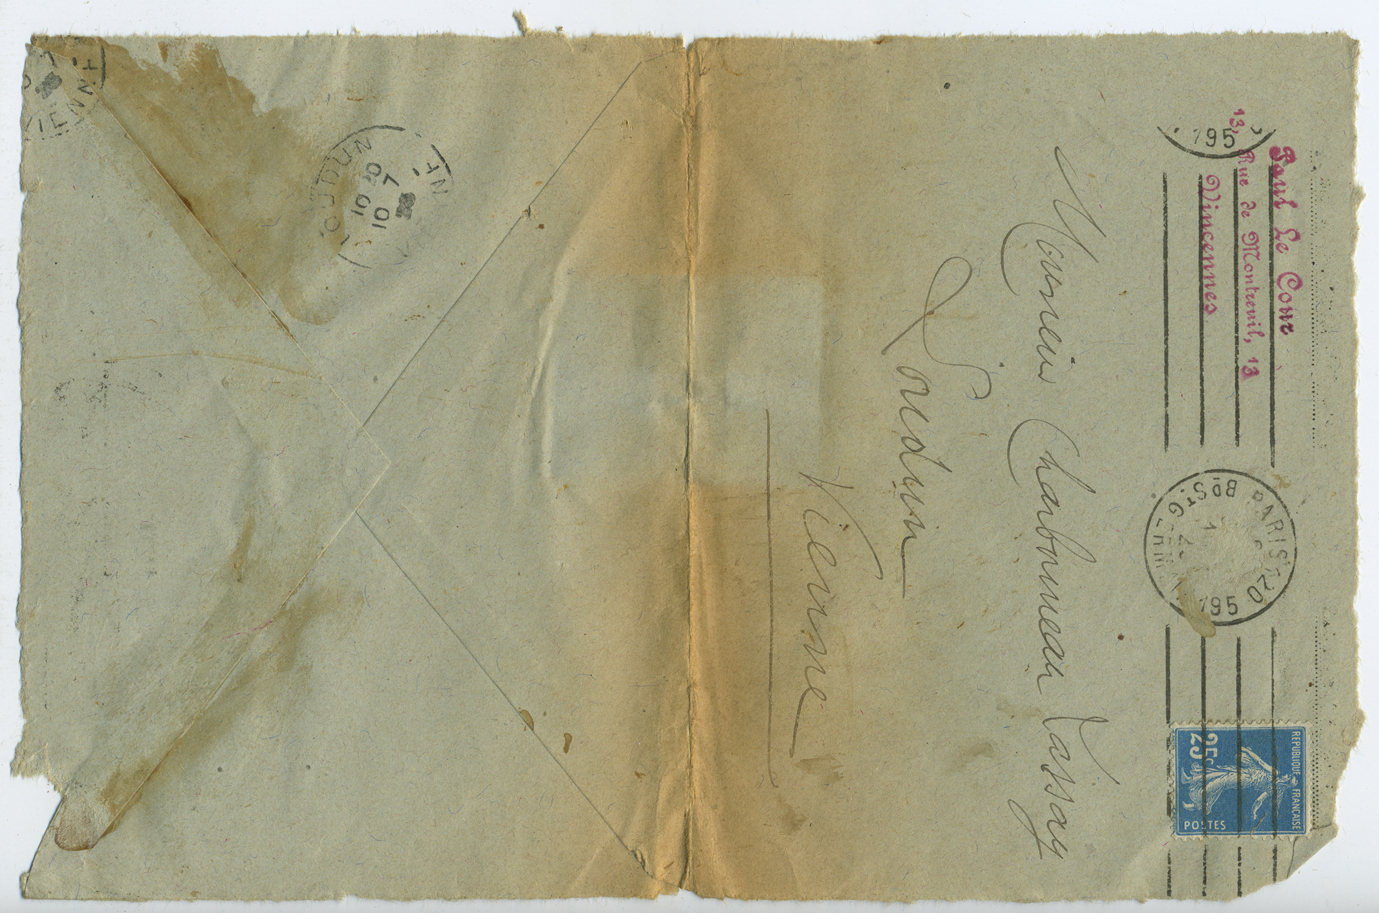 Paul Le Cour
13, Rue de Montreuil, 13
Vincennes
195
PARIS. 20
195
REPUBLIQUE FRANÇAISE
25c
POSTES
Monsieur Charbonneau Lassay
Loudun
Vienne
OUDUN
10
10 7